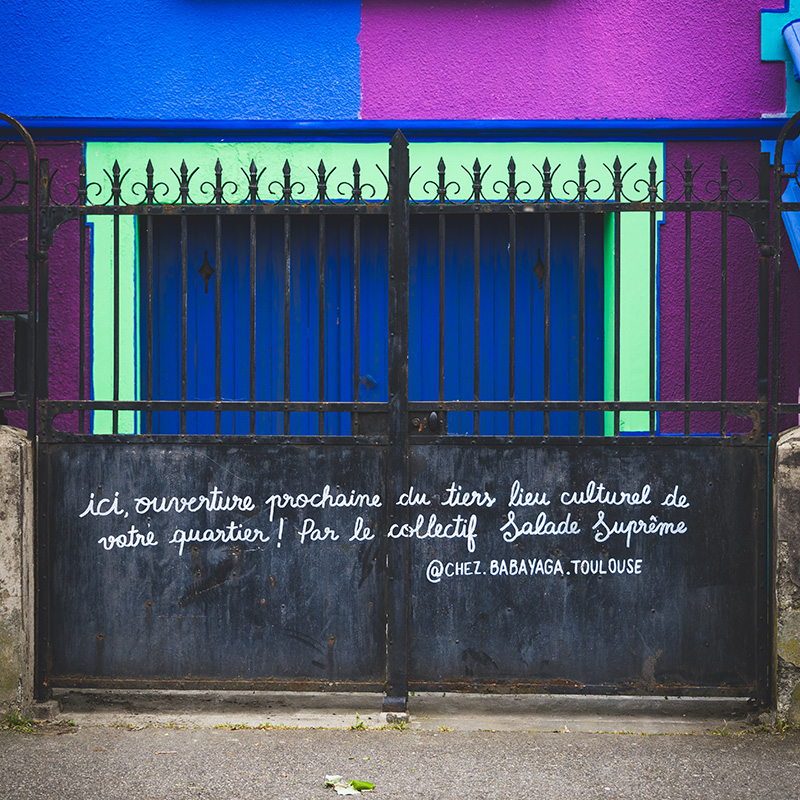 ici, ouverture prochaine du tiers lieu culturel de
votre quartier ! Par le collectif Salade Suprême
@CHEZ.BABAYAGA.TOULOUSE